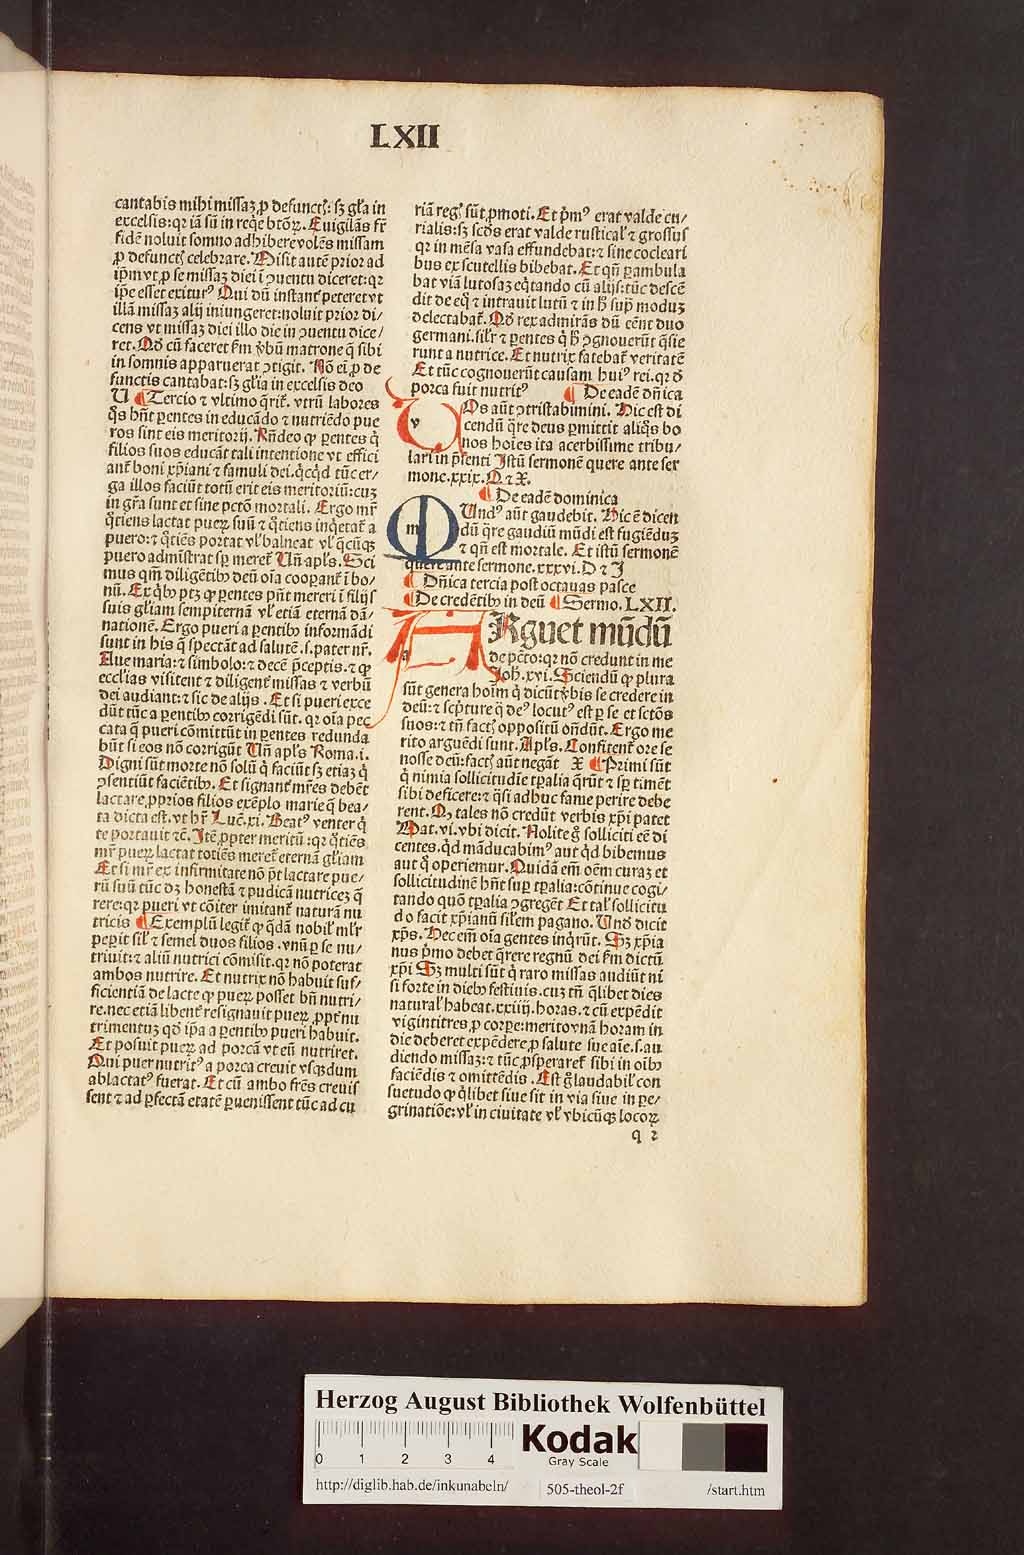 LXII
cantabis mihi missaꝫ ꝓ defunctꝭ: sꝫ gl̃a in
excelsis: qꝛ iã sũ in reqͥe btõꝝ. Euigilãs fr̃
fidē noluit somno adhibere volēs missam
ꝓ defunctꝭ celebrare. Misit autē prior ad
ip̃m vt ꝓ se missaꝫ diei ĩ ꝯuentu diceret: qꝛ
ip̃e esset exiturꝰ Qui dũ instantꝭ peteret vt
illã missaꝫ alij iniungeret: noluit prior di⸗
cens vt missaꝫ diei illo die in ꝯuentu dice⸗
ret. Qð cũ faceret ẜm v̾bũ matrone q̃ sibi
in somnis apparuerat ꝯtigit. Nõ ei ꝓ de
functis cantabat: sꝫ gl̃ia in excelsis deo
V ¶ Tercio ⁊ vltimo q̃ritꝭ. vtrũ labores
q̃s hñt ꝑentes in educãdo ⁊ nutriẽdo pue
ros sint eis meritorij. Rñdeo ꝙ ꝑentes qͥ
filios suos educãt tali intentione vt effici
antꝭ boni xp̃iani ⁊ famuli dei. qͥcqͥd tũc er⸗
ga illos faciũt totũ erit eis meritoriũ: cuꝫ
in gr̃a sunt et sine pctõ mortali. Ergo mr̃
qͦtiens lactat pueꝝ suũ ⁊ qͦtiens inqͥetatꝭ a
puero: ⁊ qͦtiẽs portat vl̾ balneat vl̾ qͥcũqꝫ
puero admĩstrat sꝑ meretꝭ Vñ apl̃s. Sci
mus qm̃ diligẽtibꝰ deũ oĩa cooꝑantꝭ ĩ bo⸗
nũ. Ex qͥbꝰ ptꝫ ꝙ ꝑentes pñt mereri ĩ filijs
suis gl̃iam sempiternã vl̾ etiã eternã dã⸗
nationē. Ergo pueri a ꝑentibꝰ informãdi
sunt in his q̃ spectãt ad salutē. s. pater nr̃.
Aue maria: ⁊ simbolo: ⁊ decē p̃ceptis. ⁊ ꝙ
eccl̃ias visitent ⁊ diligentꝭ missas ⁊ verbũ
dei audiant: ⁊ sic de alijs. Et si pueri exce
dũt tũc a ꝑentibꝰ corrigẽdi sũt. qꝛ oĩa pec
cata q̃ pueri cõmittũt in ꝑentes redunda
bũt si eos nõ corrigũt Vñ apl̃s Roma. i.
Digni sũt morte nõ solũ qͥ faciũt sꝫ etiaꝫ qͥ
ꝯsentiũt faciẽtibꝰ. Et signantꝭ mr̃es debēt
lactare ꝓprios filios exẽplo marie q̃ bea⸗
ta dicta est. vt hr̃ Luč. xi. Beatꝰ venter qͥ
te portauit ⁊č. Itē ꝓpter meritũ: qꝛ qͦtiẽs
mr̃ pueꝝ lactat totiẽs meretꝭ eternã gl̃iam
Et si mr̃ ex infirmitate nõ p̃t lactare pue⸗
rũ suũ tũc dꝫ honestã ⁊ pudicã nutriceꝫ q̃
rere: qꝛ pueri vt cõiter imitantꝭ naturã nu
tricis ¶ Exemplũ legitꝭ ꝙ q̃dã nobilꝭ ml̾r
peꝑit sil̾ ⁊ semel duos filios. vnũ ꝑ se nu⸗
triuit: ⁊ aliũ nutrici cõmisit. qꝛ nõ poterat
ambos nutrire. Et nutrix nõ habuit suf⸗
ficientiã de lacte ꝙ pueꝝ posset bñ nutri⸗
re. nec etiã libentꝭ resignauit pueꝝ ꝓptꝭ nu
trimentuꝫ qð ip̃a a ꝑentibꝰ pueri habuit.
Et posuit pueꝝ ad porcã vt eũ nutriret.
Qui puer nutritꝰ a porca creuit vsqꝫ dum
ablactatꝰ fuerat. Et cũ ambo fr̃es creuis
sent ⁊ ad ꝑfectã etatē ꝑuenissent tũc ad cu
riã regꝭ sũt ꝓmoti. Et pͥmꝰ erat valde cu⸗
rialis: sꝫ scðs erat valde rusticalꝭ ⁊ grossus
qꝛ in mẽsa vasa effundebat: ⁊ sine cocleari
bus ex scutellis bibebat. Et qñ ꝑambula
bat viã lutosaꝫ eqͥtando cũ alijs: tũc descē
dit de eqͦ ⁊ intrauit lutũ ⁊ in hͦ suꝑ moduꝫ
delectabatꝭ. Qð rex admirãs dũ cẽnt duo
germani. sil̾r ⁊ ꝑentes q̃ hͦ ꝯgnouerũt q̃sie
runt a nutrice. Et nutrix fatebatꝭ veritatē
Et tũc cognouerũt causam huiꝰ rei. qꝛ ð
porca fuit nutritꝰ ¶ De eadē dñica
VOs aũt ꝯtristabimini. Hic est di
cendũ q̃re deus ꝑmittit aliqͦs bo
nos hoĩes ita acerbissime tribu⸗
lari in p̃senti Istũ sermonē quere ante ser
mone. xxix. Q ⁊ X.
¶ De eadē dominica
MUndꝰ aũt gaudebit. Hic ē dicen
dũ q̃re gaudiũ mũdi est fugiẽduꝫ
⁊ qñ est mortale. Et istũ sermonē
quere ante sermone. xxxvi. D ⁊ I
¶ Dñica tercia post octauas pasce
¶ De credẽtibꝰ in deũ ¶ Sermo. LXII.
ARguet mũdũ
de pctõ: qꝛ nõ credunt in me
Joh̃. xvi. Sciendũ ꝙ plura
sũt genera hoĩm qͥ dicũt v̾bis se credere in
deũ: ⁊ sc̾pture qͣ deꝰ locutꝰ est ꝑ se et sctõs
suos: ⁊ tñ factꝭ oppositũ oñdũt. Ergo me
rito arguẽdi sunt. Apl̃s. Confitentꝭ ore se
nosse deũ: factꝭ aũt negãt X ¶ Primi sũt
qͥ nimia sollicitudĩe tꝑalia q̃rũt ⁊ sꝑ timēt
sibi deficere: ⁊ qͣsi adhuc fame perire debe
rent. Qꝫ tales nõ credũt verbis xp̃i patet
Mat. vi. vbi dicit. Nolite gͦ solliciti eē di
centes. qͥd mãducabimꝰ aut qͥd bibemus
aut qͦ operiemur. Quidã em̃ oẽm curaꝫ et
sollicitudinē hñt suꝑ tꝑalia: cõtinue cogi⸗
tando quõ tꝑalia ꝯgregēt Et talꝭ sollicitu
do facit xp̃ianũ sil̾em pagano. Vnð dicit
xp̃s. Hec em̃ oĩa gentes inqͥrũt. Sꝫ xp̃ia
nus pͥmo debet q̃rere regnũ dei ẜm dictũ
xp̃i Sꝫ multi sũt qͥ raro missas audiũt ni
si forte in diebꝰ festiuis. cuꝫ tñ qͥlibet dies
naturalꝭ habeat. xxiiij. horas. ⁊ cũ expẽdit
vigintitres ꝓ corꝑe: merito vnã horam in
die deberet expẽdere ꝓ salute sue aĩe. s. au
diendo missaꝫ: ⁊ tũc ꝓsperaretꝭ sibi in oĩbꝰ
faciẽdis ⁊ omittẽdis. Est gͦ laudabilꝭ con
suetudo ꝙ qͥlibet siue sit in via siue in ꝑe⸗
grinatiõe: vl̾ in ciuitate vl̾ vbicũqꝫ locoꝝ
q 2
Herzog August Bibliothek Wolfenbüttel
0 1 2 3 4
Kodak
Gray Scale
http://diglib.hab.de/inkunabeln/ 505-theol-2f /start.htm